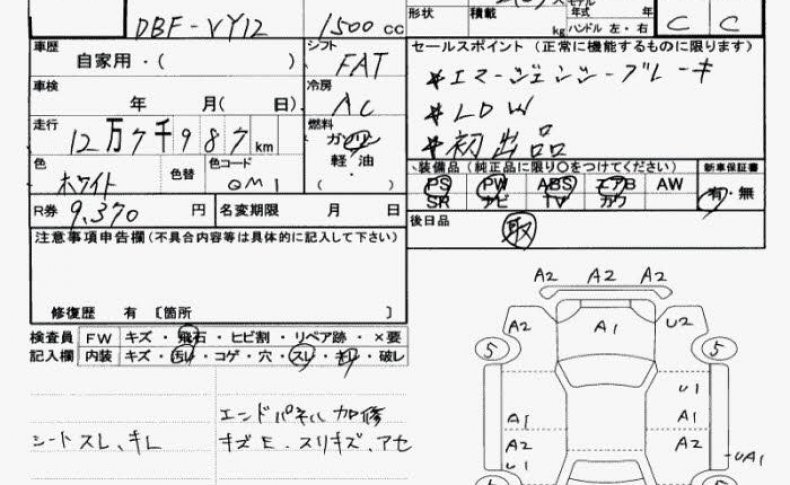 形状 積載 kg 年式 年 ハンドル 左・右
DBF-VY12 1500cc C C
車歴 自家用・( ) シフト FAT
セールスポイント (正常に機能するものに限ります)
*エマージェンシーブレーキ
車検 年 月( 日) 冷房 AC
*LDW
走行 12万7千987km 燃料 ガソリン 軽・油 ( ・ )
*初出品
色 ホワイト 色替 色コード QM1
装備品 (純正品に限り○をつけてください) 新車保証書
PS PW ABS エアB AW 有・無
SR ナビ TV カワ
R券 9,370円 名変期限 月 日
後日品 取
注意事項申告欄(不具合内容等は具体的に記入して下さい)
修復歴 有 〔箇所 〕
検査員 FW キズ・飛石・ヒビ割・リペア跡・×要
記入欄 内装 キズ・汚レ・コゲ・穴・スレ・キレ・破レ
エンドパネル加修
シートスレ、キレ キズE・スリキズ、アセ
A2 A2 A2
A2 A1 U2
5 5
U1
A1 A1
A2 A2
U1 UA1